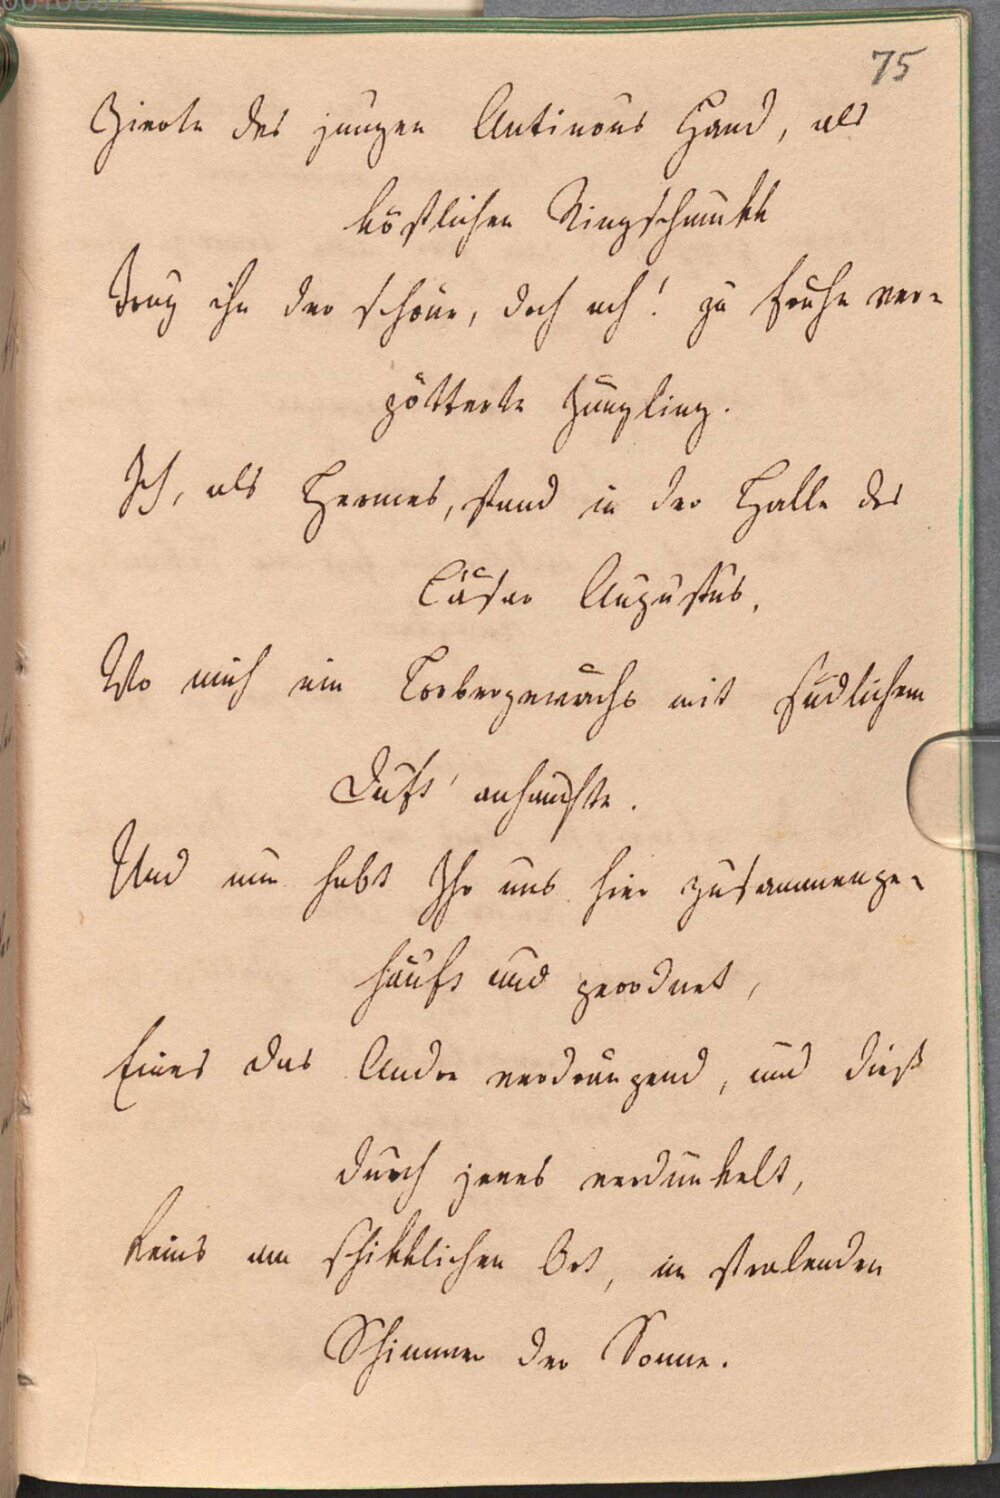 75
Zierte des jungen Antinous Hand, als
köstlichen Ringschmukk
Trug ihn der schöne, doch ach! zu fruhe ver-
götterte Jüngling.
Ich, als Hermes, stand in der Halle des
Cäsar Augustus,
Wo mich ein Lorbergewächs mit südlichem
Duft' anhauchte.
Und nun habt Ihr uns hier zusammenge-
häuft und geordnet,
Eines das Andre verdrängend, und dieß
durch jenes verdunkelt,
Keins am schikklichen Ort, im stralenden
Schimmer der Sonne.